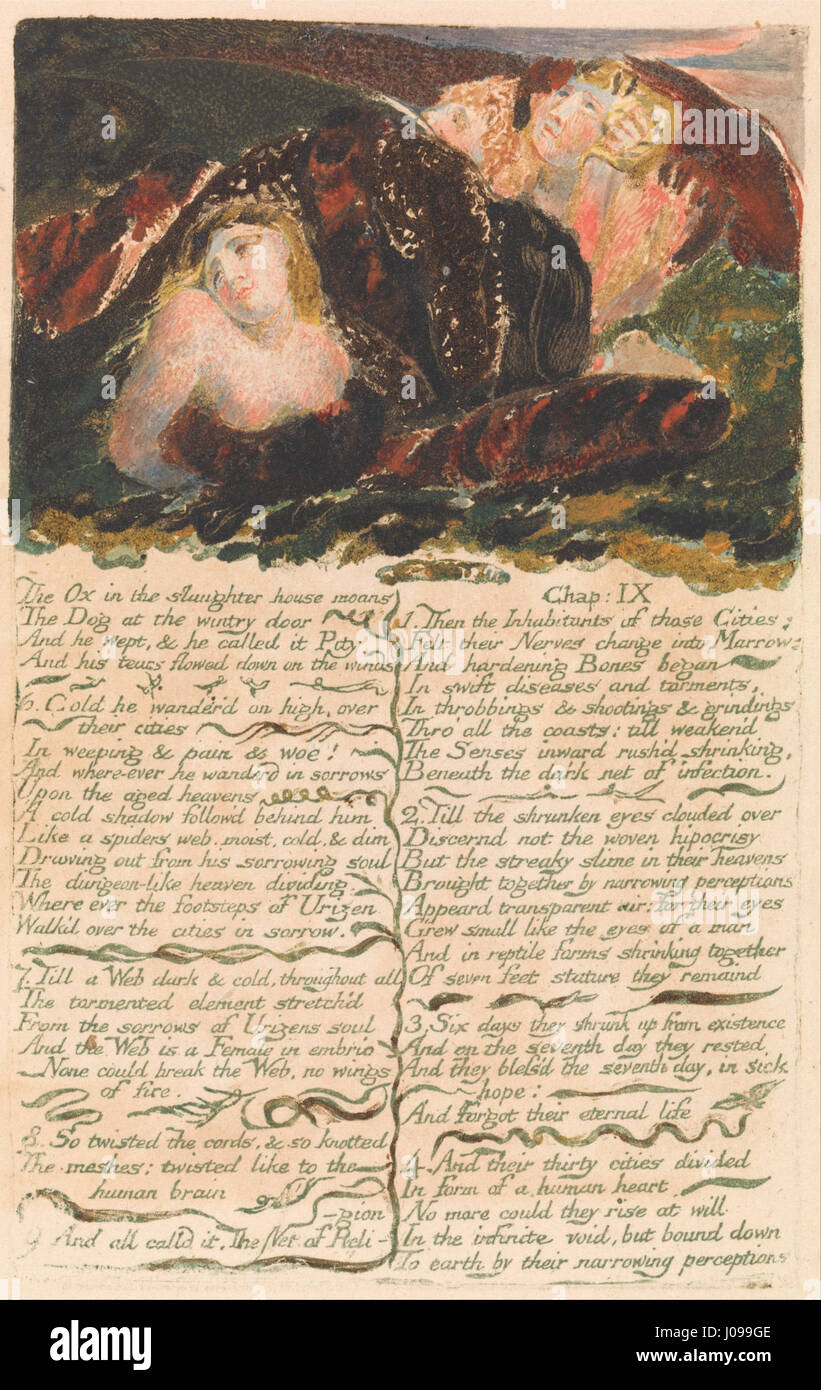 The Ox in the slaughter house moans
The Dog at the wintry door
And he wept, & he called it Pity
And his tears flowed down on the winds
6. Cold he wander'd on high, over
their cities
In weeping & pain & woe!
And where-ever he wanderd in sorrows
Upon the aged heavens
A cold shadow followd behind him
Like a spiders web, moist, cold, & dim
Drawing out from his sorrowing soul
The dungeon-like heaven dividing
Where ever the footsteps of Urizen
Walk'd over the cities in sorrow.
7. Till a Web dark & cold, throughout all
The tormented element stretch'd
From the sorrows of Urizens soul
And the Web is a Female in embrio
None could break the Web, no wings
of fire.
8. So twisted the cords, & so knotted
The meshes: twisted like to the
human brain
-gion
9. And all calld it, The Net of Reli-
Chap: IX
1. Then the Inhabitants of those Cities:
Felt their Nerves change into Marrow:
And hardening Bones began
In swift diseases and torments,
In throbbings & shootings & grindings
Thro' all the coasts: till weaken'd
The Senses inward rush'd shrinking,
Beneath the dark net of infection.
2. Till the shrunken eyes clouded over
Discernd not the woven hipocrisy
But the streaky slime in their heavens
Brought together by narrowing perceptions
Appeard transparent air: for their eyes
Grew small like the eyes of a man
And in reptile forms shrinking together
Of seven feet stature they remaind
3. Six days they shrunk up from existence
And on the seventh day they rested
And they bless'd the seventh day, in sick
hope:
And forgot their eternal life
4. And their thirty cities divided
In form of a human heart
No more could they rise at will
In the infinite void, but bound down
To earth by their narrowing perceptions
alamy
a alamy stock photo
J099GE
www.alamy.com